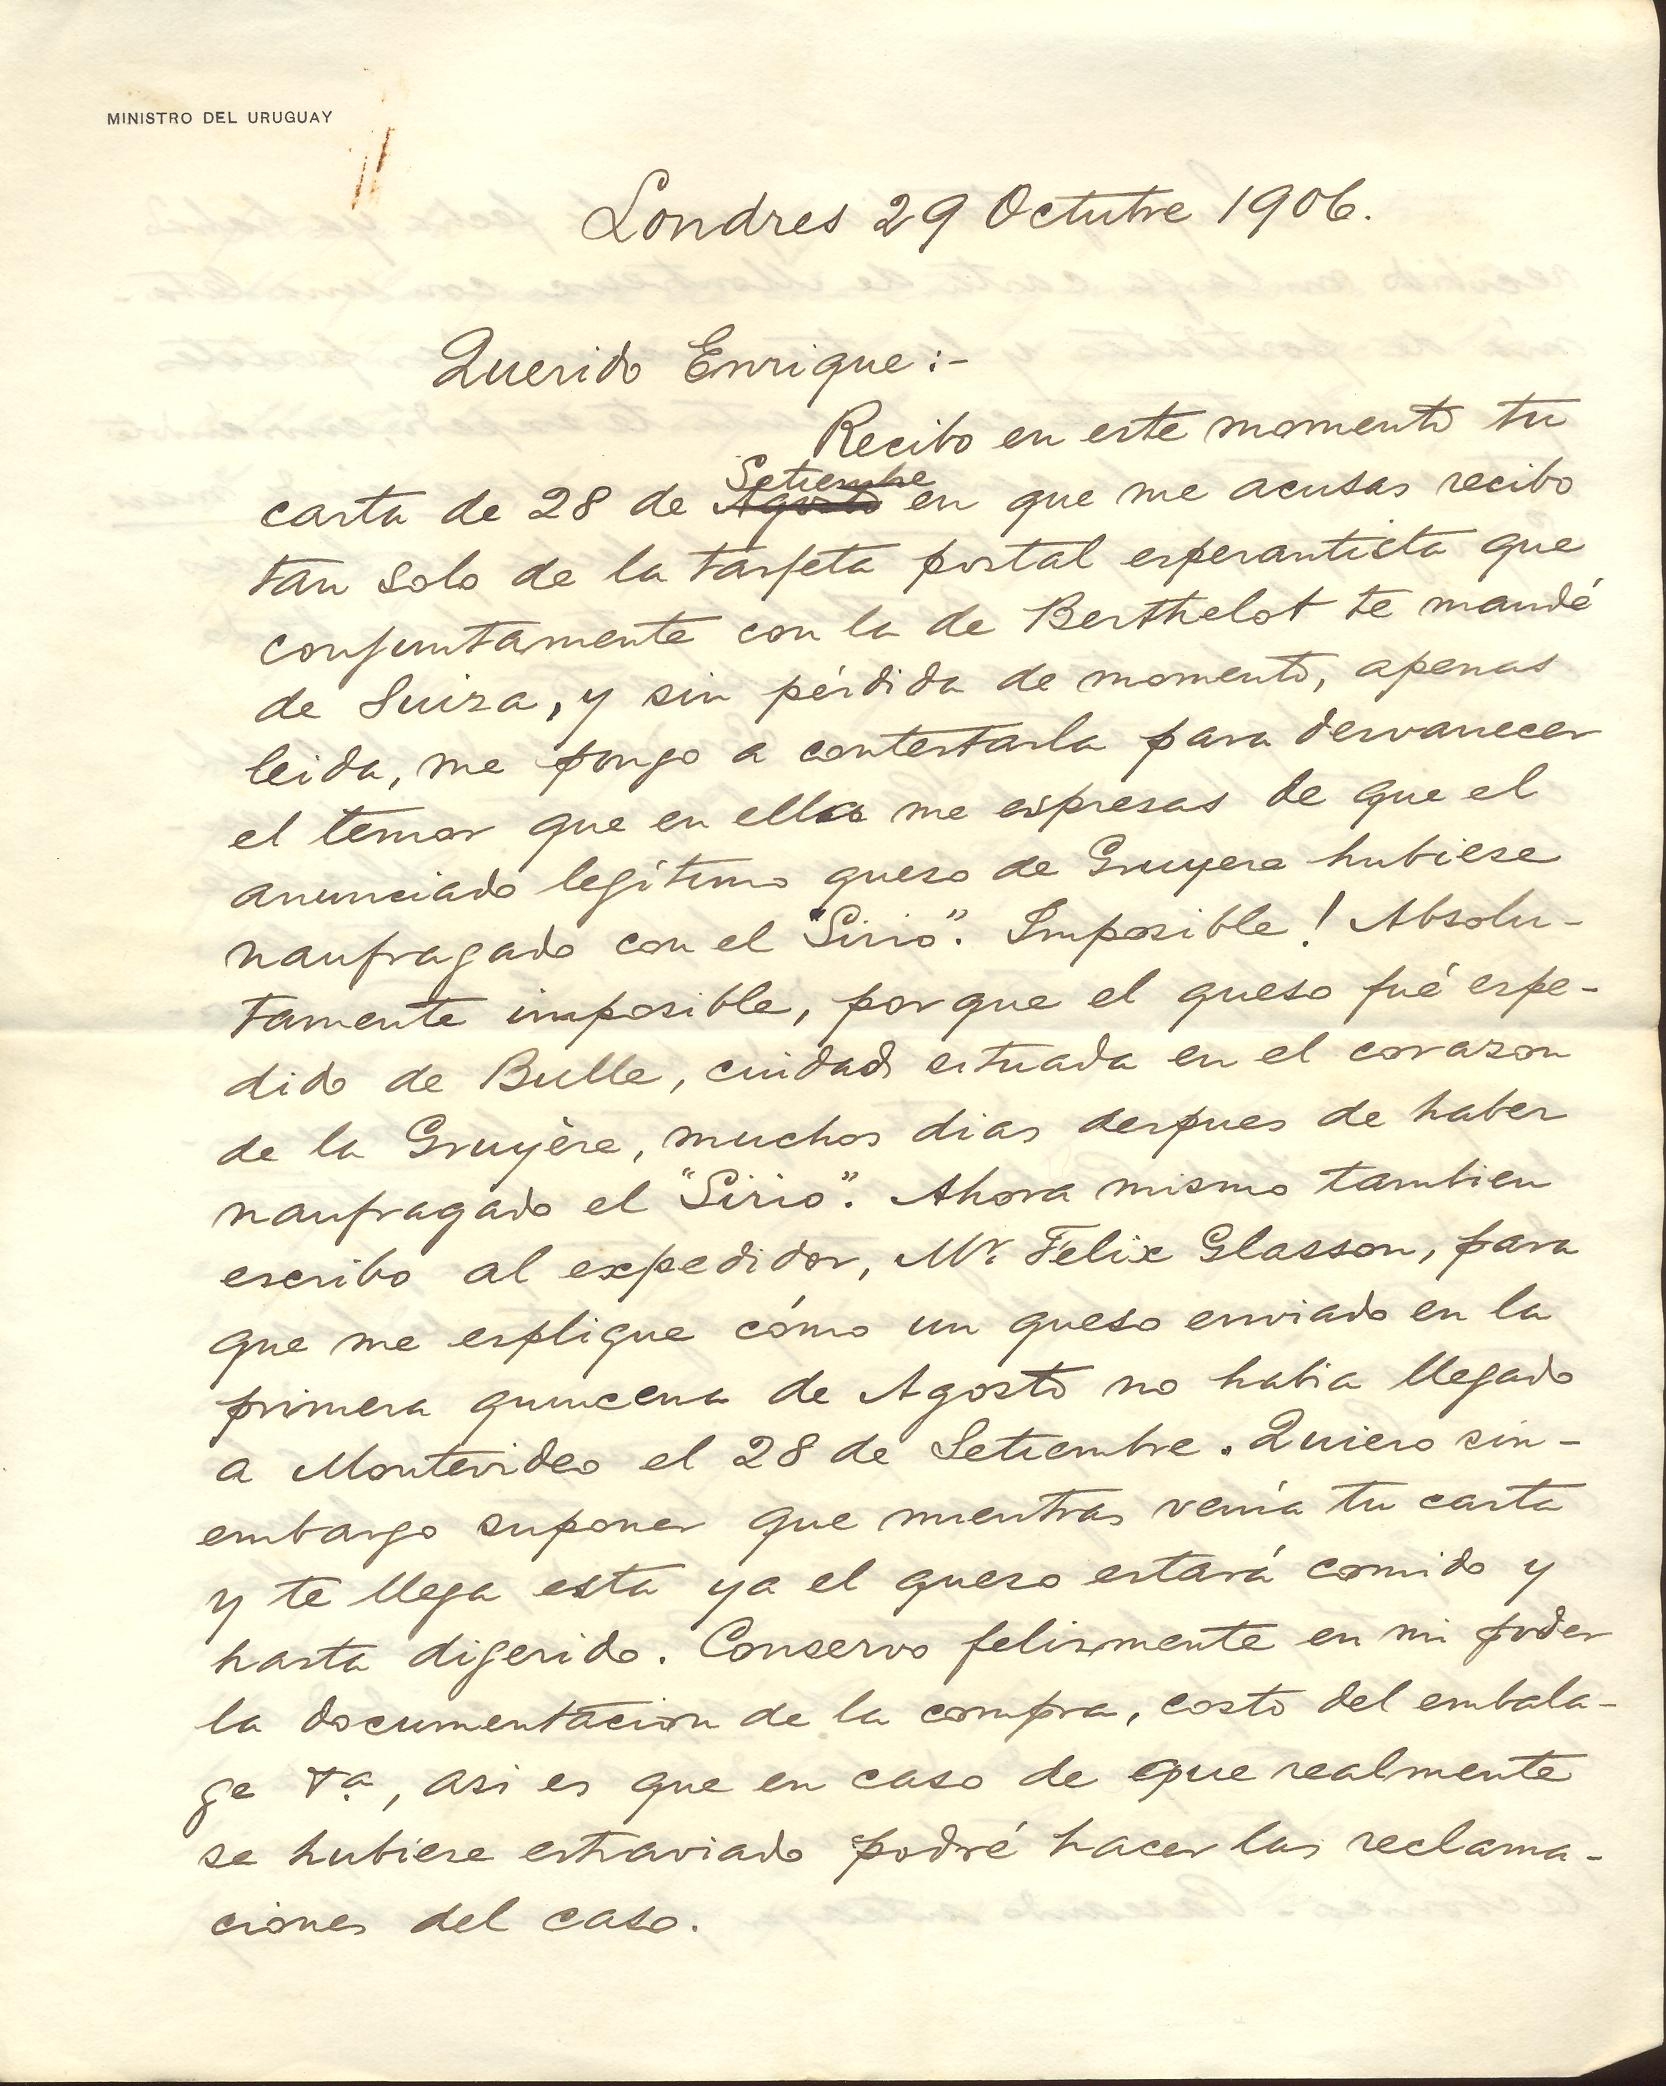 MINISTRO DEL URUGUAY
Londres 29 Octubre 1906.
Querido Enrique:-
Recibo en este momento tu
Setiembre
carta de 28 de Agosto en que me acusas recibo
tan solo de la tarjeta postal esperantista que
conjuntamente con la de Berthelot te mandé
de Suiza, y sin pérdida de momento, apenas
leida, me pongo a contestarla para desvanecer
el temor que en ella me espresas de que el
anunciado legítimo queso de Gruyere hubiese
naufragado con el "Sirio". Imposible! Absolu-
tamente imposible, porque el queso fué espe-
dido de Bulle, ciudad situada en el corazon
de la Gruyère, muchos dias despues de haber
naufragado el "Sirio". Ahora mismo tambien
escribo al expedidor, Mr. Felix Glasson, para
que me esplique cómo un queso enviado en la
primera quincena de Agosto no habia llegado
a Montevideo el 28 de Setiembre. Quiero sin-
embargo suponer que mientras venía tu carta
y te llega esta ya el queso estará comido y
hasta digerido. Conservo felizmente en mi poder
la documentacion de la compra, costo del embala-
ge &a, asi es que en caso de que realmente
se hubiese estraviado podré hacer las reclama-
ciones del caso.